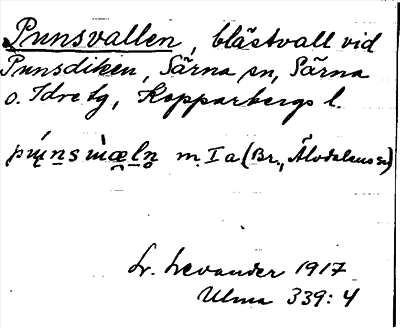 Punsvallen, blästvall vid
Punsdiken, Särna sn, Särna
o. Idre tg, Kopparbergs l.
m. I a (Br., Älvdalens sn)
L. Levander 1917
Ulma 339: 4